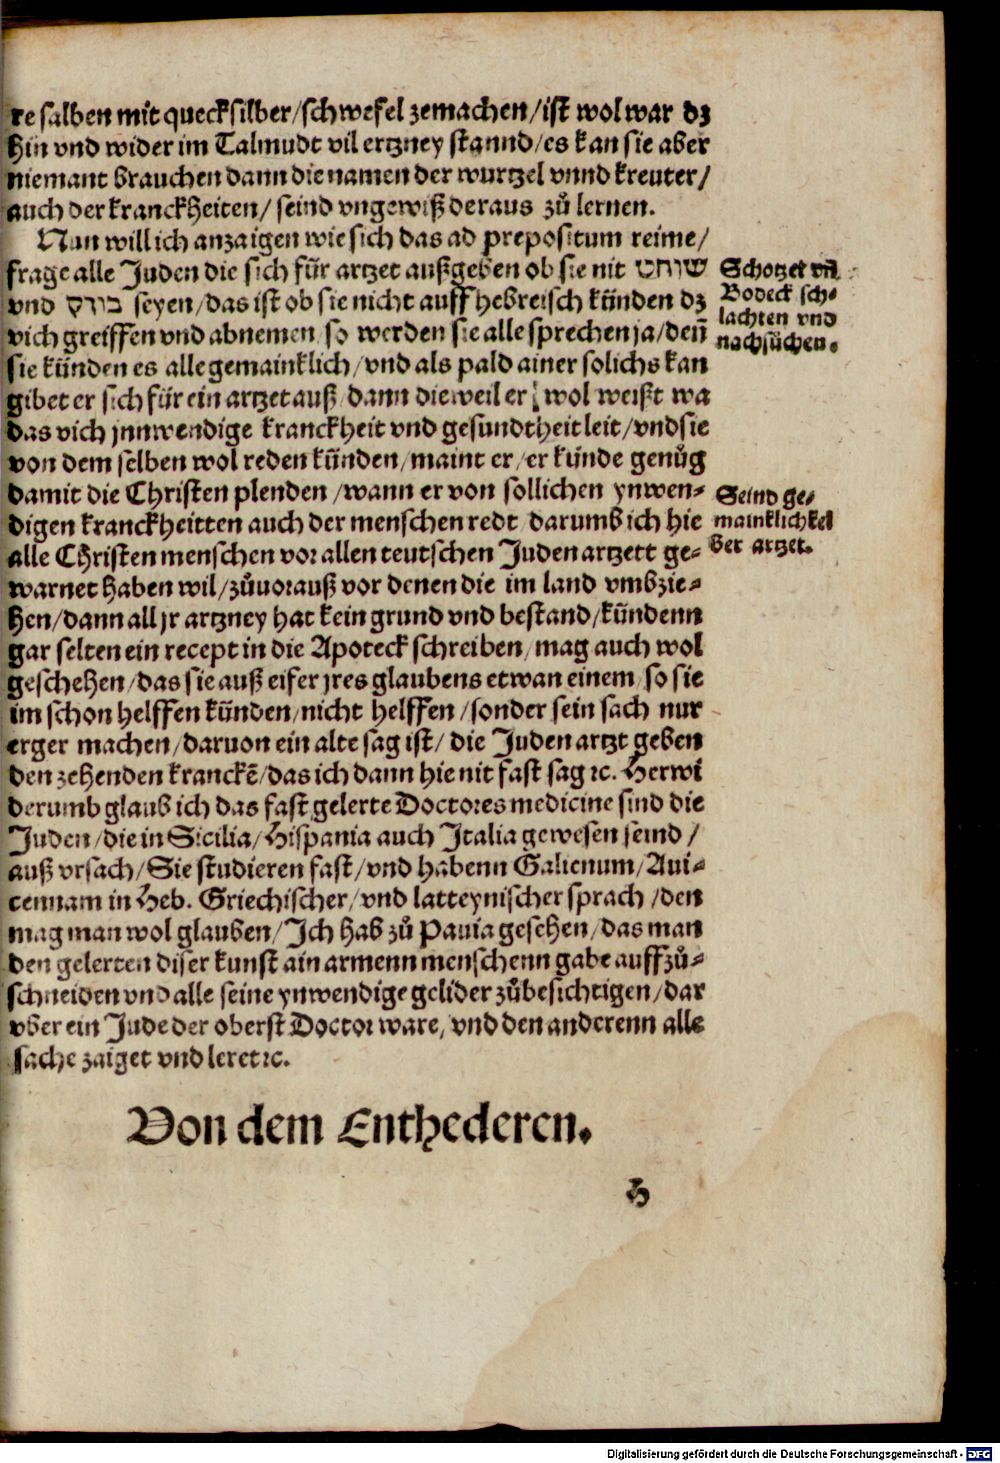 re salben mit quecksilber/schwefel zemachen/ist wol war dz
hin vnd wider im Talmudt vil ertzney stannd/es kan sie aber
niemant brauchen dann die namen der wurtzel vnnd kreuter/
auch der kranckheiten/ seind vngewiß deraus zů lernen.
Nun will ich anzaigen wie sich das ad prepositum reime/
frage alle Juden die sich für artzet außgeben ob sie nit שוחט
vnd בודק seyen/das ist ob sie nicht auff hebreisch künden dz
vich greiffen vnd abnemen/so werden sie alle sprechen ja/deñ
sie künden es alle gemainklich/vnd als pald ainer solichs kan
gibet er sich für ein artzet auß/dann die weil er wol weißt wa
das vich jnnwendige kranckheit vnd gesundtheit leit/vnd sie
von dem selben wol reden künden/maint er/er künde genůg
damit die Christen plenden/wann er von sollichen ynwen-
digen kranckheitten auch der menschen redt/darumb ich hie
alle Christen menschen vor allen teutschen Juden artzett ge-
warnet haben wil/zůuorauß vor denen die im land vmbzie-
hen/dann all jr artzney hat kein grund vnd bestand/kündenn
gar selten ein recept in die Apoteck schreiben/mag auch wol
geschehen/das sie auß eifer jres glaubens etwan einem/so sie
im schon helffen künden/nicht helffen/sonder sein sach nur
erger machen/daruon ein alte sag ist/ die Juden artzt geben
den zehenden kranckē/das ich dann hie nit fast sag ꝛc. Herwi
derumb glaub ich das fast gelerte Doctores medicine sind die
Juden/die in Sicilia/Hispania auch Italia gewesen seind/
auß vrsach/Sie studieren fast/vnd habenn Galienum/Aui-
cennam in Heb. Griechischer/vnd latteynischer sprach/den
mag man wol glauben/Ich hab zů Pauia gesehen/das man
den gelerten diser kunst ain armenn menschenn gabe auffzů-
schneiden vnd alle seine ynwendige gelider zůbesichtigen/dar
vber ein Jude der oberst Doctor ware/vnd den anderenn alle
sache zaiget vnd leret ꝛc.
Schotzet vñ
Bodeck sch-
lachten vnd
nachsůchen.
Seind ge-
mainklich kel
ber artzet.
Von dem Enthederen.
H
Digitalisierung gefördert durch die Deutsche Forschungsgemeinschaft - DFG